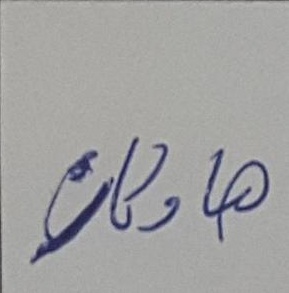 هاوكار